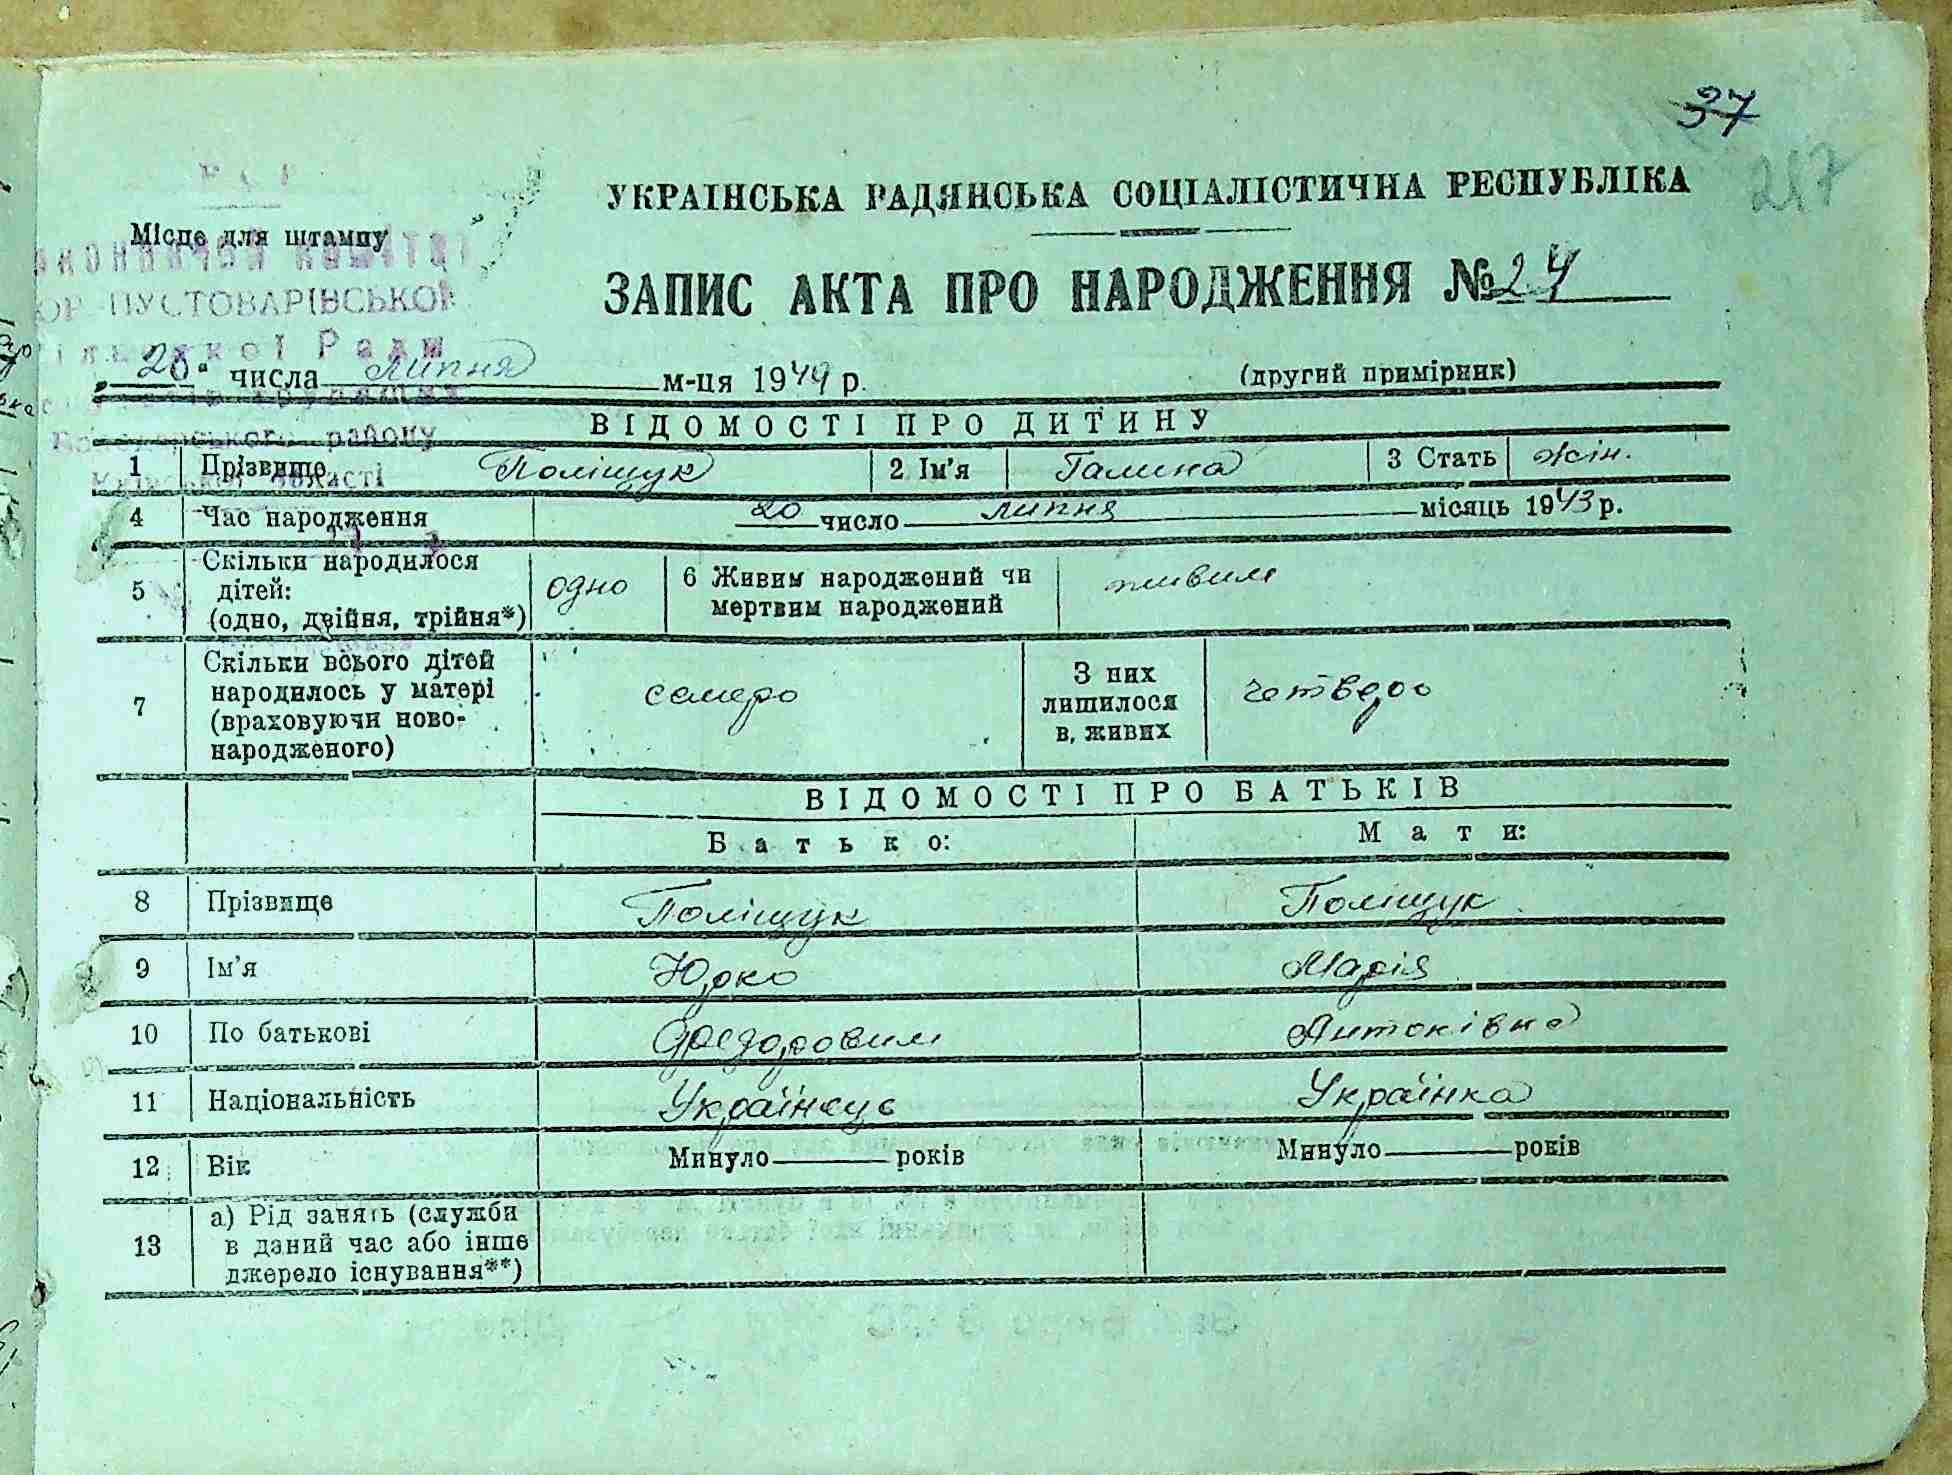 37
217
УКРАЇНСЬКА РАДЯНСЬКА СОЦІАЛІСТИЧНА РЕСПУБЛІКА
Місце для штампу
ПУСТОВАРІВСЬКОЇ
Ради
району
області
ЗАПИС АКТА ПРО НАРОДЖЕННЯ № 24
„20“ числа липня м-ця 1949 р. (другий примірник)
ВІДОМОСТІ ПРО ДИТИНУ
1 Прізвище Поліщук 2 Ім’я Галина 3 Стать жін.
4 Час народження 20 число липня місяць 1943 р.
5 Скільки народилося дітей: (одно, двійня, трійня*) одно 6 Живим народжений чи мертвим народжений живим
7 Скільки всього дітей народилось у матері (враховуючи ново-народженого) семеро З них лишилося в живих четверо
ВІДОМОСТІ ПРО БАТЬКІВ
Батько: Мати:
8 Прізвище Поліщук Поліщук
9 Ім’я Юрко Марія
10 По батькові Федорович Антонівна
11 Національність Українець Українка
12 Вік Минуло років Минуло років
13 а) Рід занять (служби в даний час або інше джерело існування**)